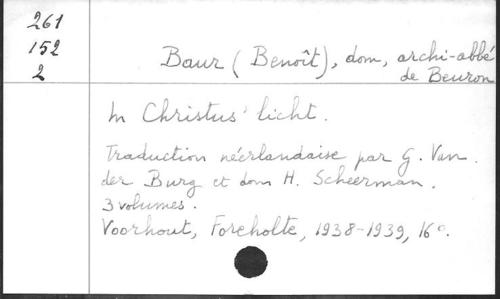 261
152
2
Baur (Benoît), dom, archi-abbé
de Beuron
In Christus' licht.
Traduction néerlandaise par G. Van
der Burg et dom H. Scheerman.
3 volumes.
Voorhout, Foreholte, 1938-1939, 16°.